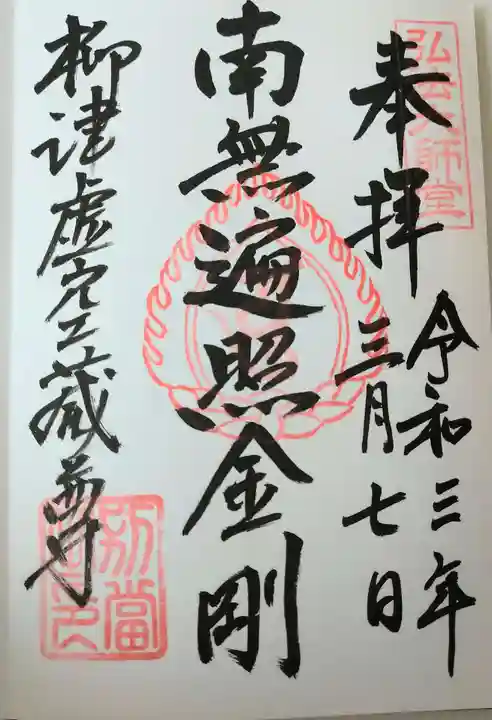 弘法大師堂
奉拝
令和三年
三月七日
南無遍照金剛
柳津虚空蔵尊
別當